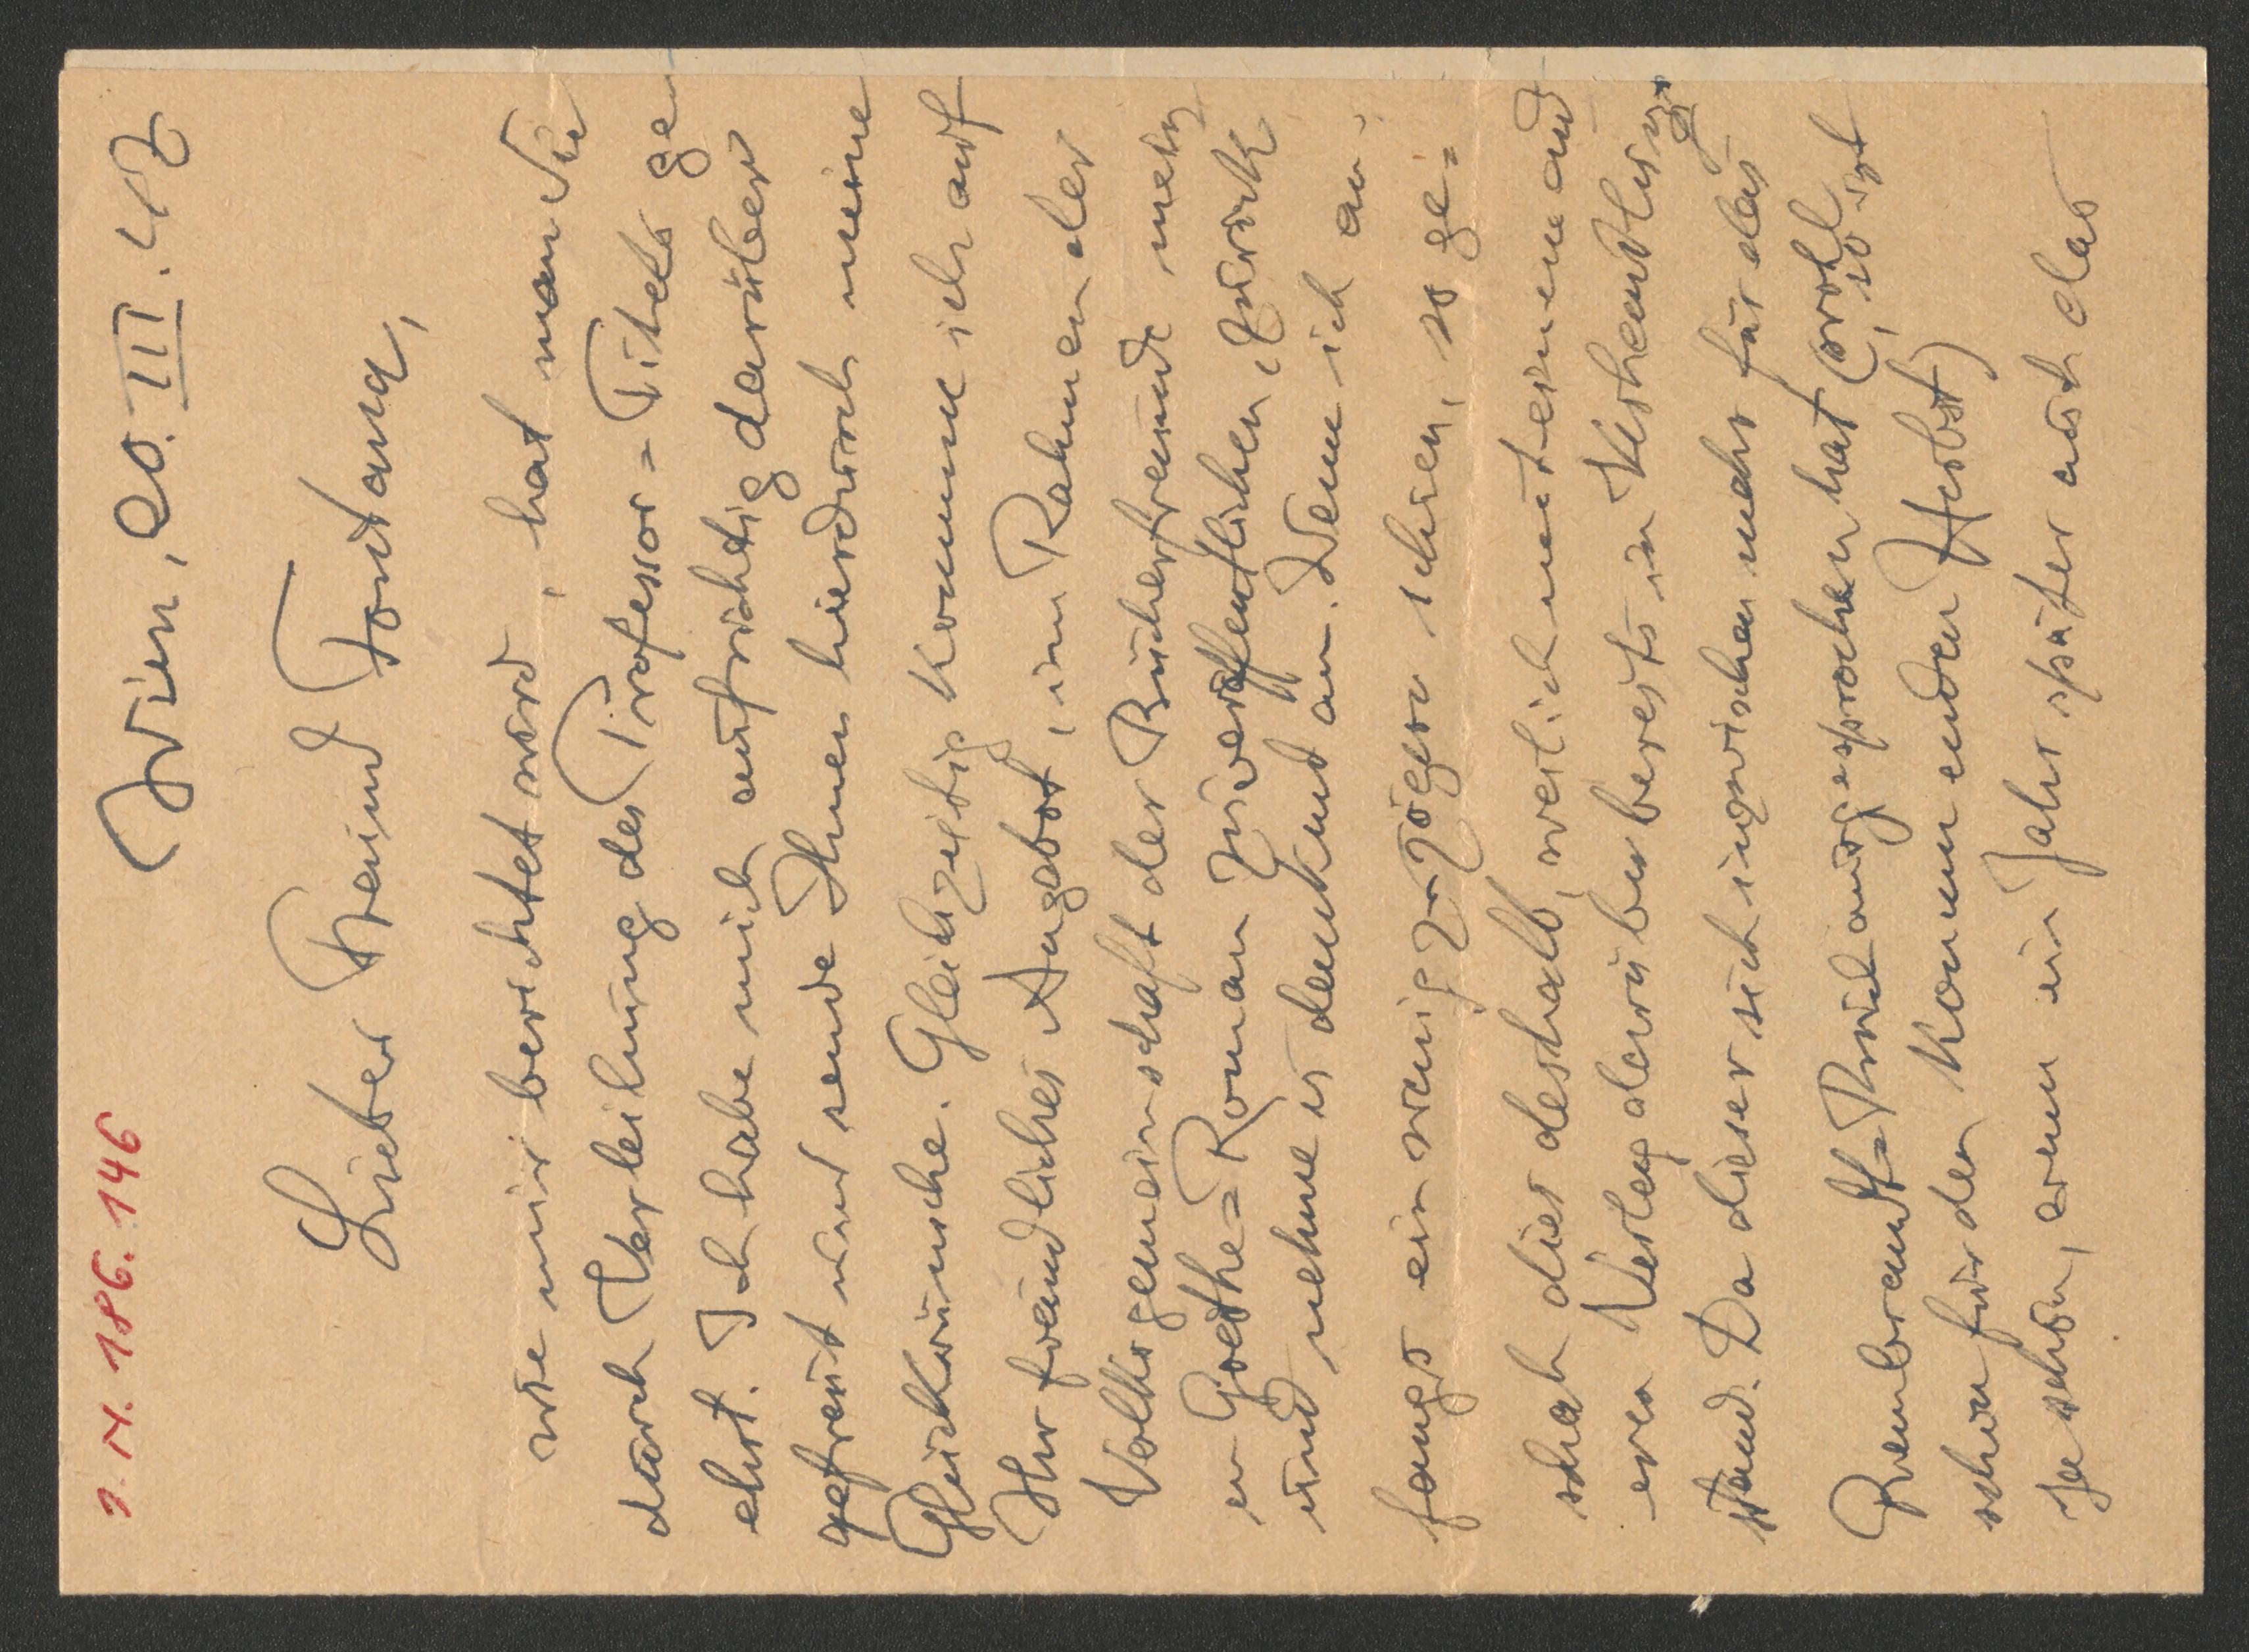 I. N. 186.146
Wien, 20. III. 47
Lieber Freund Fontana,
wie mir berichtet wird, hat man Sie
durch Verleihung des Professor=Titels ge
ehrt. Ich habe mich aufrichtig darüber
gefreut und sende Ihnen hierdurch meine
Glückwünsche. Gleichzeitig komme ich auf
Ihr freundliches Angebot, im Rahmen der
Volksgemeinschaft der Bücherfreunde mein
en Goethe=Roman zu veröffentlichen, zurück
und nehme es dankend an. Wenn ich an=
fangs ein wenig zu zögern schien, so ge=
schah dies deshalb, weil ich mit einem and
eren Verlag darüber bereits in Verhandlung
stand. Da dieser sich inzwischen mehr für das
Rembrandt=Buch ausgesprochen hat (wohl
schon für den kommenden Herbst), so ist
ja schon, erum ein Jahr später auch das